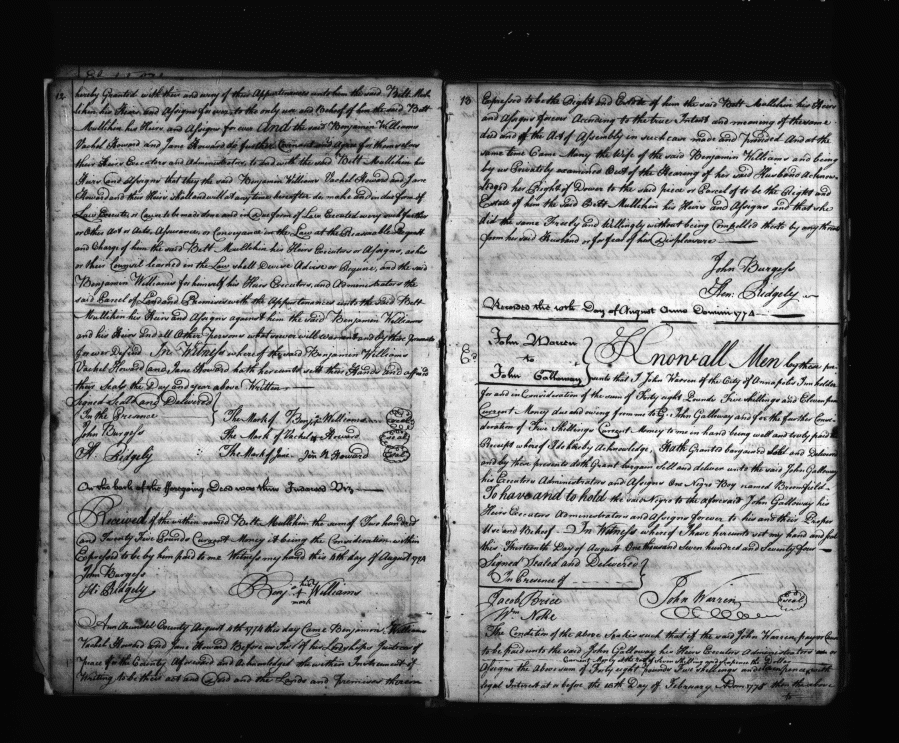 12
hereby Granted with their and every of their Appurtenances unto him the said Belt Mul-
likin his Heirs and Assigns forever to the only use and Behoof of him the said Belt
Mullikin his Heirs and Assigns for ever And the said Benjamin Williams
Vachel Howard and Jane Howard do further Covenant and Agree for themselves
their Heirs Executors and Administrators, to and with the said Belt Mullikin his
Heirs and Assigns that they the said Benjamin Williams Vachel Howard and Jane
Howard and their Heirs shall and will at any time hereafter do make and
Law Execute or Cause to be made done and in Due form of Law Executed every such further
or Other Act or Acts, Assurance or Conveyance in the Law at the Reasonable Request
and Charge of him the said Belt Mullikin his Heirs Executors or Assigns, as his
or their Council learned in the Law shall Devise Advise or Require, and the said
Benjamin Williams for himself his Heirs Executors, and Administrators the
said Parcel of Land and Premises with the Appurtenances unto the said Belt
Mullikin his Heirs and Assigns against him the said Benjamin Williams
and his Heirs and all Other Persons whatsoever will warrant and by these Presents
forever Defend. In Witness whereof the said Benjamin Williams
Vachel Howard and Jane Howard hath hereunto set their Hands and affixed
their Seals the Day and year above Written
Signed Seald and Delivered
In the Presence
The Mark of Benj Williams
John Burgess
The Mark of Vachel Howard
H. Ridgely
The Mark of Jane Howard
On the back of the foregoing Deed was thus Indorsed Viz
Received of the within named Belt Mullikin the sum of Two hundred
and Twenty Five Pounds Current Money it being the Consideration within
Expressed to be by him paid to me Witness my hand this 4th day of August 1774
John Burgess
H. Ridgely
Benj his mark Williams
Ann Arundel County August 4th 1774 this day Came Benjamin Williams
Vachel Howard and Jane Howard Before us Two of his Lordships Justices of
Peace for the County Aforesaid and Acknowledged the within Instrument of
Writing to be their act and Deed and the Lands and Premises therein
13
Expressed to be the Right and Estate of him the said Belt Mullikin his Heirs
and Assigns forever According to the true Intent and meaning of the same
deed and of the Act of Assembly in such case made and Provided And at the
same time Came Mary the Wife of the said Benjamin Williams and being
by us Privately examined Out of the Hearing of her said Husband Acknow-
ledged her Right of Dower to the said piece or Parcel of to be the Right and
Estate of him the said Belt Mullikin his Heirs and Assigns and that she
did the same Freely and Willingly without being Compelled thereto by any threats
from her said Husband or for fear of his Displeasure
John Burgess
Hen: Ridgely
Recorded the 10th Day of August Anno Domini 1774
John Warren
to
John Galloway
Know all Men by these pre-
sents that I John Warren of the City of Annapolis Inn holder
for and in Consideration of the sum of Forty eight Pounds Five shillings and Eleven pence
Current Money due and owing from me to John Galloway and for the further Consi-
deration of Five Shillings Current Money to me in hand being well and truly paid the
Receipt whereof I do hereby Acknowledge Hath Granted bargained Sold and Delivered
and by these presents doth Grant bargain sell and deliver unto the said John Galloway
his Executors Administrators and Assigns One Negro Boy named
To have and to hold the said Negro to the aforesaid John Galloway his
Heirs Executors Administrators and Assigns forever to his and their Proper
Use and Behoof In Witness whereof I have hereunto set my hand and seal
this Thirteenth Day of August One thousand Seven hundred and Seventy four
Signed Sealed and Delivered
In Presence of
John Warren
seal
Jacob Brice
Wm Noke
The Condition of the above Sale is such that if the said John Warren pay or Cause
to be paid unto the said John Galloway his Heirs Executors Administrators or
Current Money at the rate of Seven Shillings and Sixpence the Dollar
Assigns the Above sum of Forty eight pounds Five shillings and eleven pence with
legal Interest at or before the 10th Day of February Dom 1775 then the above